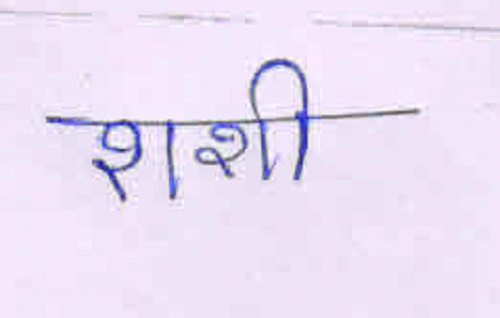 शशी